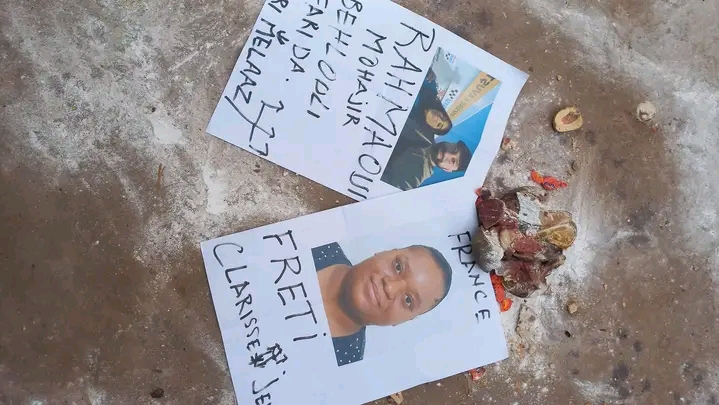 RAHMAOUI
MOHAJIR
BEHLOULI
FARIDA.
RI MELAAZ
FRANCE
FRETI
CLARISSE JE